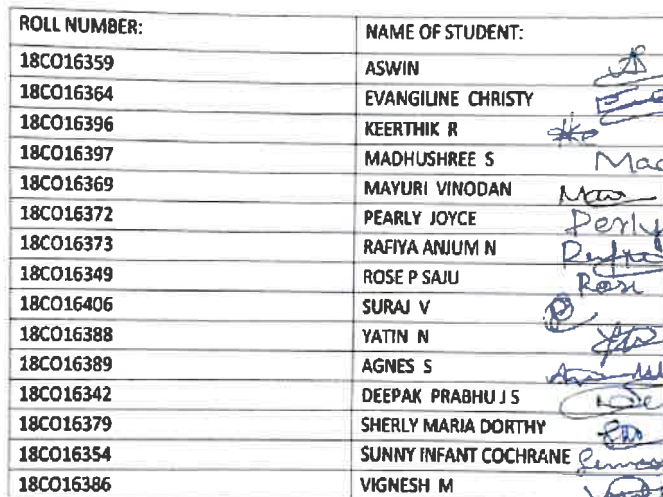 ROLL NUMBER: NAME OF STUDENT:
18CO16359 ASWIN
18CO16364 EVANGILINE CHRISTY
18CO16396 KEERTHIK R
18CO16397 MADHUSHREE S Mad
18CO16369 MAYURI VINODAN
18CO16372 PEARLY JOYCE Perly
18CO16373 RAFIYA ANJUM N
18CO16349 ROSE P SAJU Rose
18CO16406 SURAJ V
18CO16388 YATIN N
18CO16389 AGNES S
18CO16342 DEEPAK PRABHU J S
18CO16379 SHERLY MARIA DORTHY
18CO16354 SUNNY INFANT COCHRANE
18CO16386 VIGNESH M